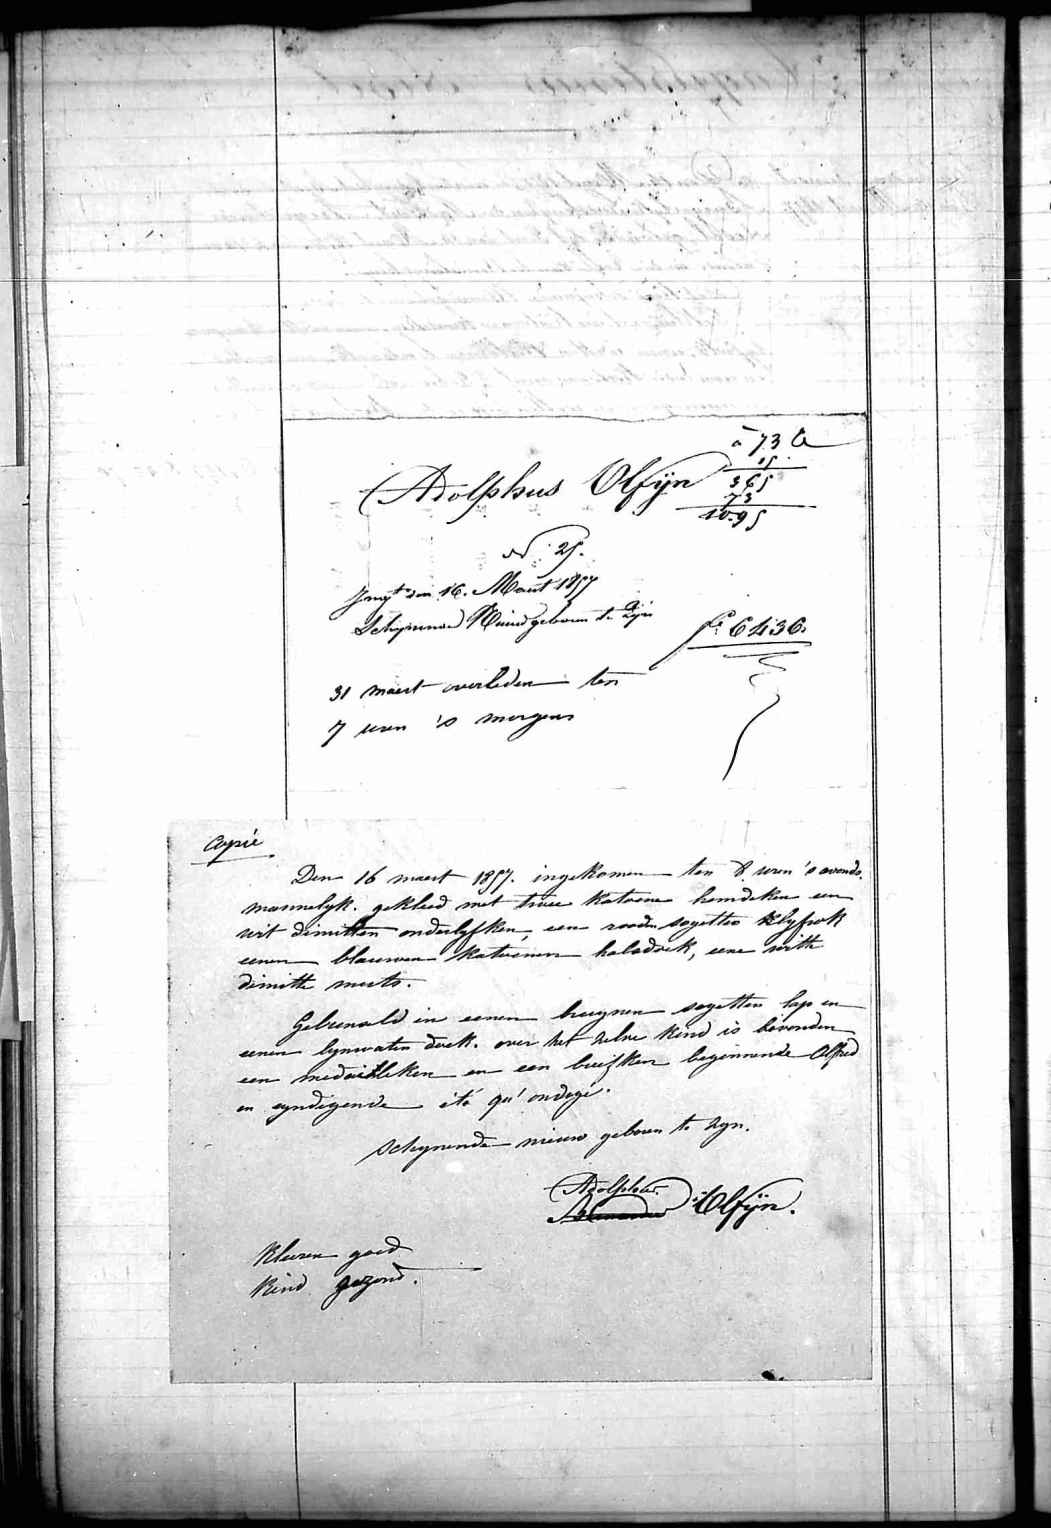 à 73 c
15.
Adolphus Olfÿn
365
73
10.95
N. 25.
Ingt den 16. Maart 1857
Schijnende Nieuwgeboren te Zijn
fs 6436.
31 maert overleden ten
7 uren 's morgens
Copie
Den 16 maert 1857. ingekomen ten 8 uren 's avonds.
mannelyk. gekleed met twee katoene hemdeken een
wit dimitten onderlyfken, een roode sayetten klyfrok
eenen blauwen katoenen halsdoek, eene witte
dimitte muts.
Gebunseld in eenen bruynen sayetten lap en
eenen lynwaten doek. over het zelve kind is bevonden
een medailleken en een briefken beginnende Alfred
en eyndigende été qu' ondégé.
Schynende nieuw geboren te zyn.
Adolphus
Olfÿn.
Kleeren goed
Kind gezond.